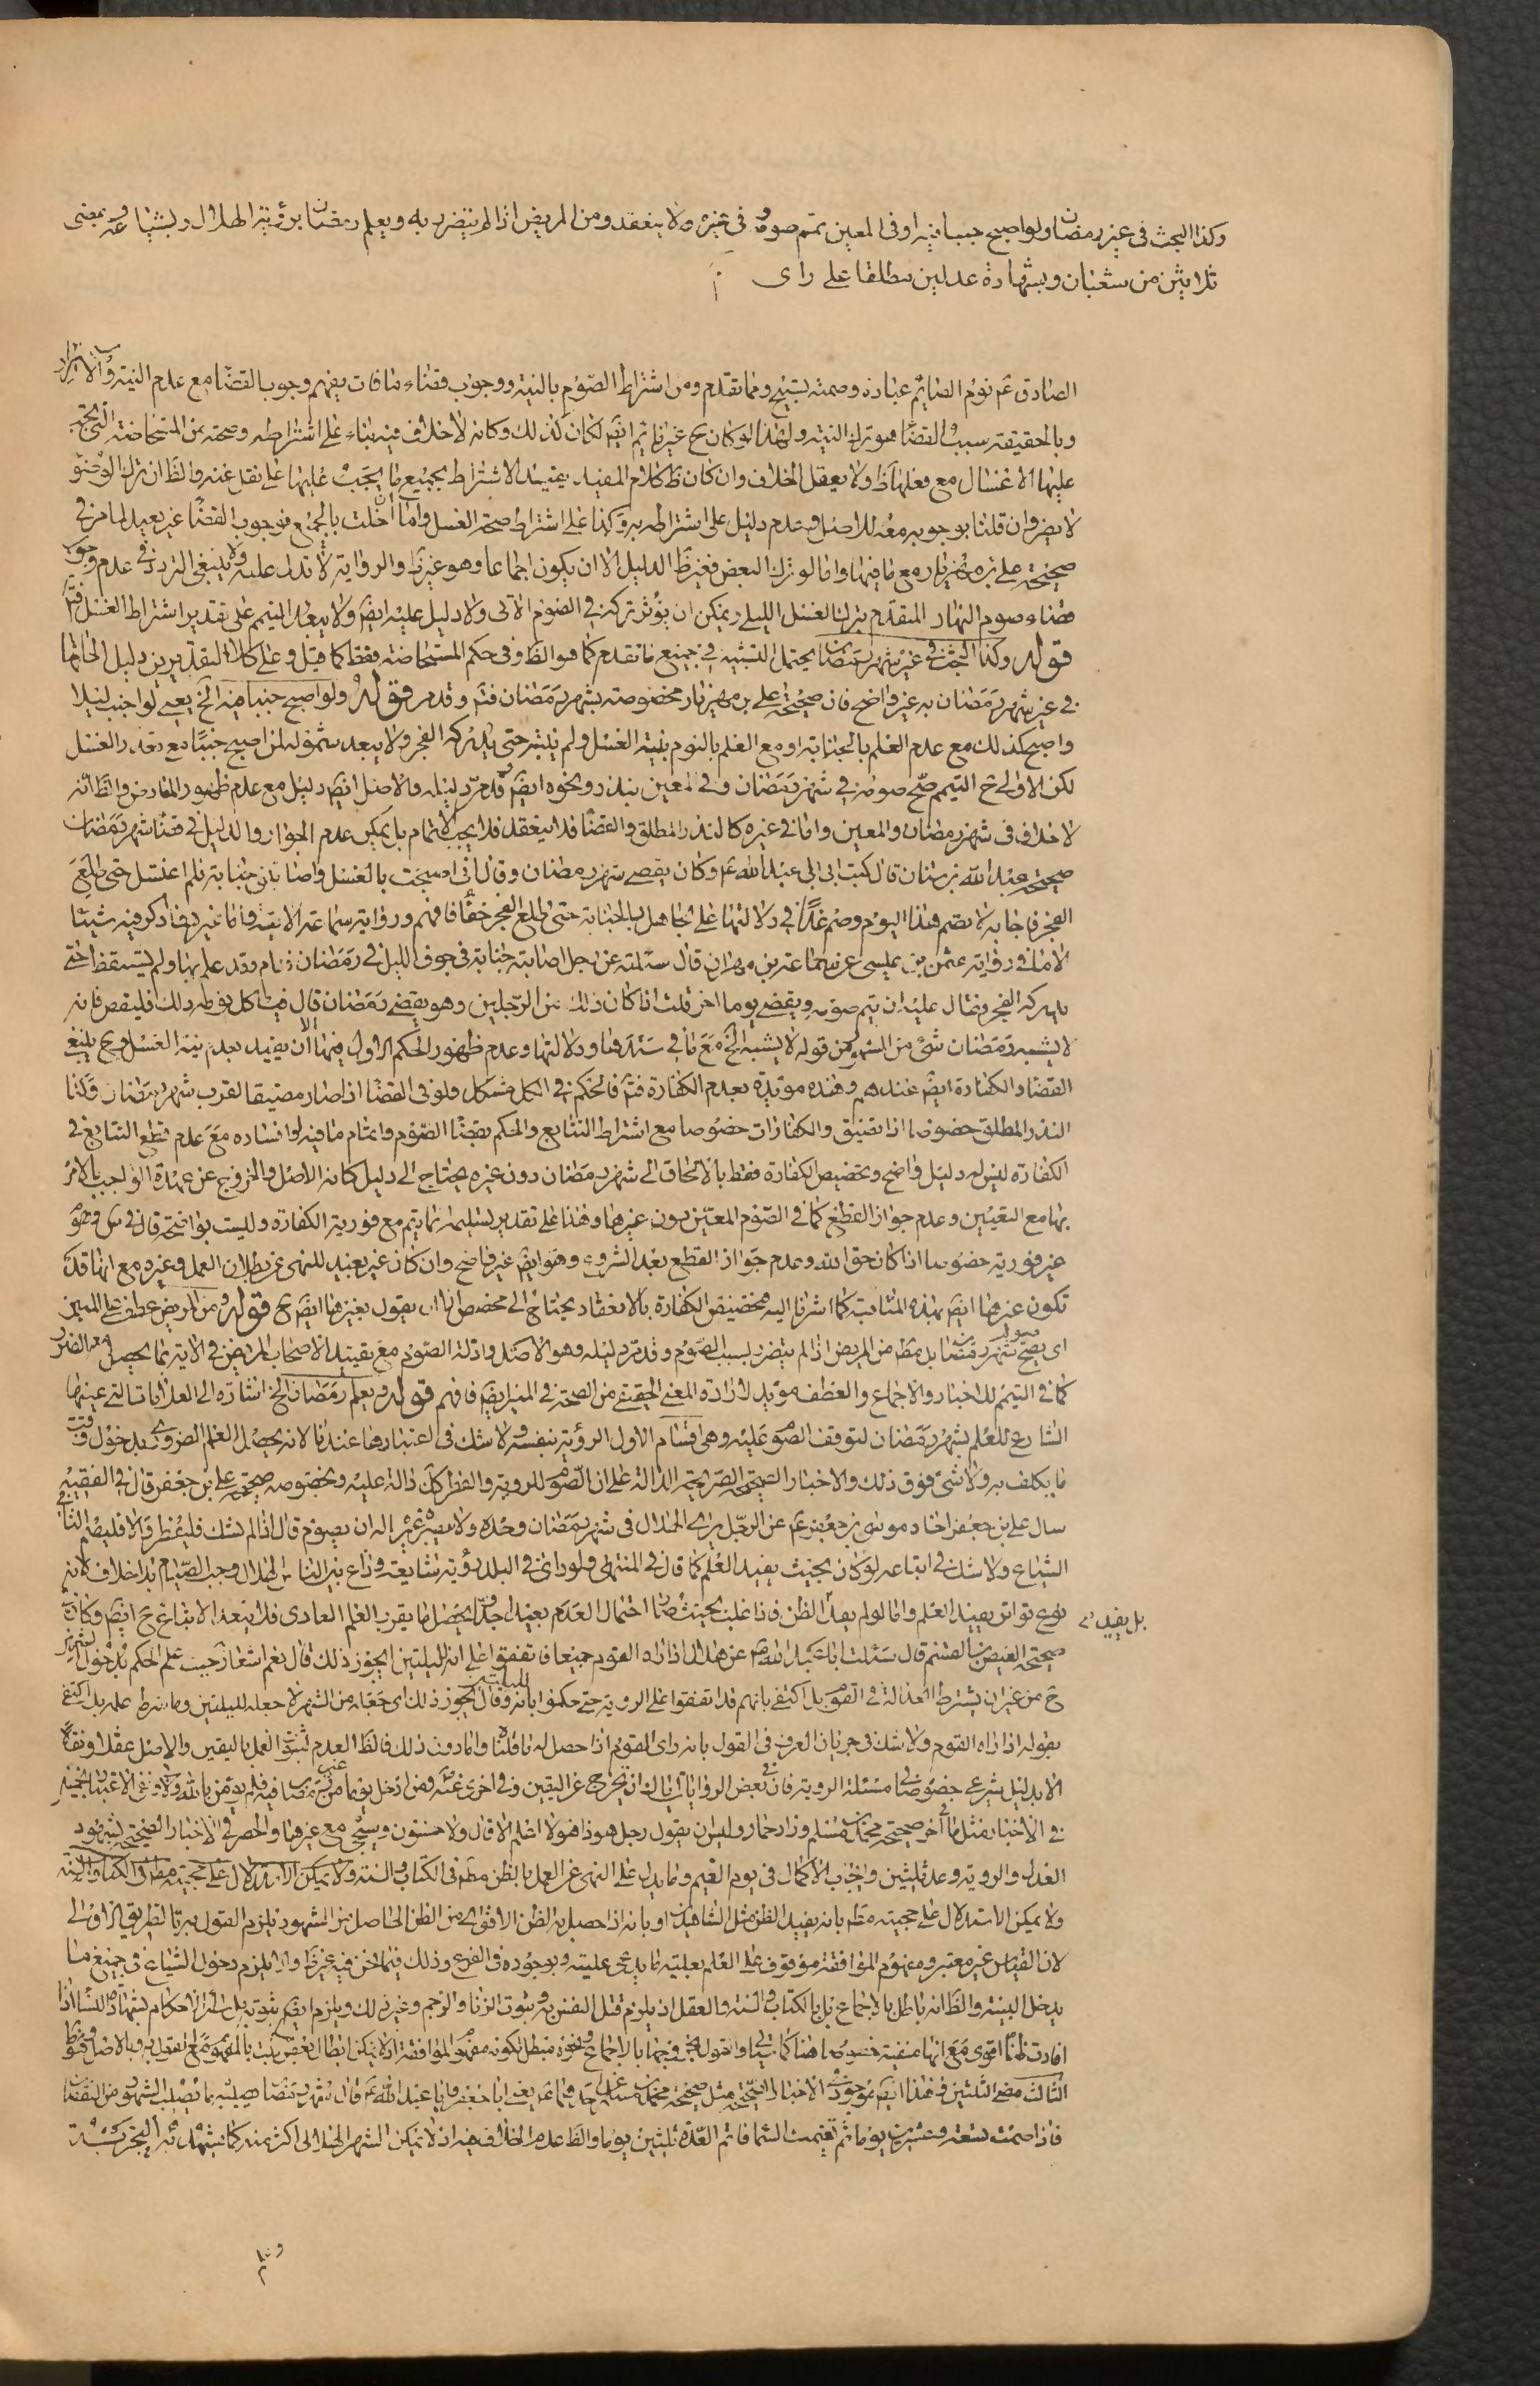 وكذا البحث في غير رمضان ولو اصبح جنبا فيه او في المعين تمم صومه وفي غيره لا ينعقد ومن المريض اذا لم يتضرر به ويعلم رمضان برؤية الهلال وبشياعه وبمضى
ثلاثين من شعبان وبشهادة عدلين مطلقا على راى
الصادق ع نوم الصايم عبادة وصمته تسبيح ومما تقدم ومن اشتراط الصوم بالنية ووجوب قضاء ما فات يفهم وجوب القضا مع عدم النية
وبالحقيقة سبب القضا هو ترك النية ولهذا لو كان ح غير نائم ايض لكان كذلك وكانه لا خلاف فيه بناء على اشتراطه وصحته من المستحاضة التي يجب
عليها الاغسال مع فعلها ظ ولا يعقل الخلاف وان كان ظ كلام المفيد يفيد الاشتراط بجميع ما يجب عليها على نقل عنه والظ ان ترك الوضوء
لا يضر وان قلنا بوجوبه معه للاصل وعدم دليل على اشتراطه به وكذا على اشتراط صحة الغسل واما ان اخلت بالجميع فوجوب القضا غير بعيد لما مر في
صحيحة علي بن مهزيار مع ما فيها واما لو ترك البعض فغير ظ الدليل الا ان يكون اجماعا وهو غير ظ والرواية لا تدل عليه ولا ينبغي التردد في عدم وجوب
قضاء صوم النهار المقدم بترك الغسل الليلي ويمكن ان يؤثر تركه في الصوم الآتى ولا دليل عليه ايض ولا يبعد التيمم على تقدير اشتراط الغسل فتم
قوله وكذا البحث في غير شهر رمضان يحتمل التشبيه في جميع ما تقدم كما هو الظ وفي حكم المستحاضة فقط كما قيل وعلى كلا التقديرين دليل الحاقها
في غير شهر رمضان به غير واضح فان صحيحة علي بن مهزيار مخصوصة بشهر رمضان فتم وقد مر قوله ولو اصبح جنبا فيه الخ يعني لو اجنب ليلا
واصبح كذلك مع عدم العلم بالجنابة او مع العلم بالنوم بنية الغسل ولم ينتبه حتى يدركه الفجر ولا يبعد شموله لمن اصبح جنبا مع تعذر الغسل
لكن الاولى ح التيمم صح صومه في شهر رمضان وفي المعين بنذر ونحوه ايض قد مر دليله والاصل ايض دليل مع عدم ظهور المعارض والظ انه
لا خلاف في شهر رمضان والمعين واما في غيره كالنذر المطلق والقضا فلا ينعقد فلا يجب الاتمام بل يمكن عدم الجواز والدليل في قضا شهر رمضان
صحيحة عبد الله بن سنان قال كتب ابي الى عبد الله ع وكان يقضي شهر رمضان وقال اني اصبحت بالغسل واصابتني جنابة فلم اغتسل حتى طلع
الفجر فاجابه لا تصم هذا اليوم وصم غدا في دلالتها على الجاهل بالجنابة حتى طلع الفجر خفا فافهم ورواية سماعة الآتية واما غيره فما ذكر فيه شيئا
الا ما في رواية عثمن بن عيسى عن سماعة بن مهران قال سئلته عن رجل اصابته جنابة في جوف الليل في رمضان فنام وقد علم بها ولم يستيقظ حتى
يدركه الفجر فقال عليه ان يتم صومه ويقضي يوما اخر قلت اذا كان ذلك من الرجلين وهو يقضي رمضان قال فياكل يومه ذلك فليقض فانه
لا يشبه رمضان شئ من الشهور من قوله لا يشبه الخ مع ما في سندها ودلالتها وعدم ظهور الحكم الاول فيها الا ان يقيد بعدم نية الغسل وح ينبغي
القضا والكفارة ايض عندهم وهذه مؤيدة بعدم الكفارة فتم فالحكم في الكل مشكل ولو في القضا اذا صار مضيقا لقرب شهر رمضان وكذا
النذر المطلق خصوصا اذا تضيق والكفارات خصوصا مع اشتراط التتابع والحكم بقضا الصوم واتمام ما فيه او افساده مع عدم قطع التتابع في
الكفارة ليس له دليل واضح وتخصيص الكفارة فقط بالالحاق الى شهر رمضان دون غيره يحتاج الى دليل كانه الاصل والخروج عن عهدة الواجب بالامر
بها مع التعيين وعدم جواز القطع كما في الصوم المعين دون غيرها وهذا على تقدير تسليمه انما يتم مع فورية الكفارة وليست بواضحة
غير فورية خصوصا اذا كان حق الله وعدم جواز القطع بعد الشروع وهو ايض غير واضح وان كان غير بعيد للنهى عن بطلان العمل وغيره مع انها قد
تكون غيرها ايض بهذه المثابة كما اشرنا اليه فتخصيص الكفارة بالانعقاد يحتاج الى مخصص الا ان يقول بغيرها ايض ح قوله ومن المريض عطف على المميز
اى يصح صوم شهر رمضان بل مط من المريض اذا لم يتضرر بسبب الصوم وقد مر دليله وهو الاصل وادلة الصوم مع تقييد الاصحاب المريض في الاية بما يحصل معه الضرر
كما في التيمم للاخبار والاجماع والعطف مؤيد لارادة المعنى الحقيقي من الصحة في المميز ايض فافهم قوله ويعلم رمضان الخ اشارة الى العلامات التي عينها
الشارع للعلم بشهر رمضان لتوقف الصوم عليه وهي اقسام الاول الرؤية بنفسه ولا شك في اعتبارها عندنا لانه يحصل العلم الضروري بدخول وقت
ما يكلف به ولا شئ فوق ذلك والاخبار الصحيحة الصريحة الدالة على ان الصوم للرؤية والفطر كك دالة عليه وبخصوصه صحيحة علي بن جعفر قال في الفقيه
سال علي بن جعفر اخاه موسى بن جعفر ع عن الرجل يرى الهلال في شهر رمضان وحده ولا يبصره غيره اله ان يصوم قال اذا لم يشك فليفطر والا فليصم الثاني
الشياع ولا شك في اتباعه لو كان بحيث يفيد العلم كما قال في المنتهى ولو راى في البلد رؤية شايعة وذاع بين الناس الهلال وجب الصيام بلا خلاف لانه
نوع تواتر يفيد العلم واما لو لم يفد الا الظن فاذا غلب بحيث صار احتمال العدم بعيدا جدا يحصل ما يقرب العلم العادى فلا يبعد الاتباع ح ايض وكان
بل يفيد
صحيحة العيص بن القسم قال سئلت ابا عبد الله ع عن هلال اذا راه القوم جميعا فاتفقوا على انه لليلتين ايجوز ذلك قال نعم اشعار حيث علم الحكم بدخول الشهر
ح من غير ان يشترط العدالة في القوم بل اكتفى بانهم قد اتفقوا على الرؤية حتى حكموا بانه لليلتين وقال يجوز ذلك اى جعله من الشهر لا جعله لليلتين وما شرط علمه بل اكتفى
بقوله اذا راه القوم ولا شك في جريان العرف في القول بانه راى القوم اذا حصل له ما قلناه واما دون ذلك فالظ العدم لثبوت العمل باليقين والاصل عقلا ونقلا
الا بدليل شرعي خصوصا في مسئلة الرؤية فان في بعض الروايات اياك ان تخرج عن اليقين وفي اخرى
في الاخبار مثل ما في آخر صحيحة محمد بن مسلم وزاد حماد وليس ان يقول رجل هوذا هو لا اعلم الا قال ولا خمسون وسيجئ مع غيرها والحصر في الاخبار الصحيحة بشهود
العدل والرؤية وعد ثلثين وايجاب الاكمال في يوم الغيم وما يدل على النهى عن العمل بالظن مط في الكتاب والسنة ولا يمكن الاستدلال على حجيته مط في الكتاب والسنة
ولا يمكن الاستدلال على حجيته مط بانه يفيد الظن مثل الشاهدين او بانه اذا حصل به الظن الاقوى من الظن الحاصل من الشهود فيلزم القبول به بالطريق الاولى
لان القياس غير معتبر ومفهوم الموافقة موقوف على العلم بعلية ما يدعى عليته وبوجوده في الفرع وذلك فيما نحن فيه غير ظ والا يلزم دخول الشياع في جميع ما
يدخل البينة والظ انه باطل بالاجماع بل بالكتاب والسنة والعقل اذ يلزم قتل النفس به وثبوت الزنا والرجم وغير ذلك ويلزم ايض ثبوت سائر الاحكام بشهادة النسا اذا
افادت ظنا اقوى مع انها منفية خصوصا هنا كما سيأتي
الثالث مضى الثلثين فهذا ايض موجود في الاخبار الصحيحة مثل صحيحة محمد بن مسلم عن احدهما ع يعني ابا جعفر وابا عبد الله ع قال شهر رمضان يصيبه ما يصيب الشهور من النقصان
فاذا صمت تسعة وعشرين يوما ثم تغيمت السما فاتم العدة ثلثين يوما والظ عدم الخلاف فيه اذ لا يمكن الشهر الهلالى اكثر منه كما يشهد به التجربة